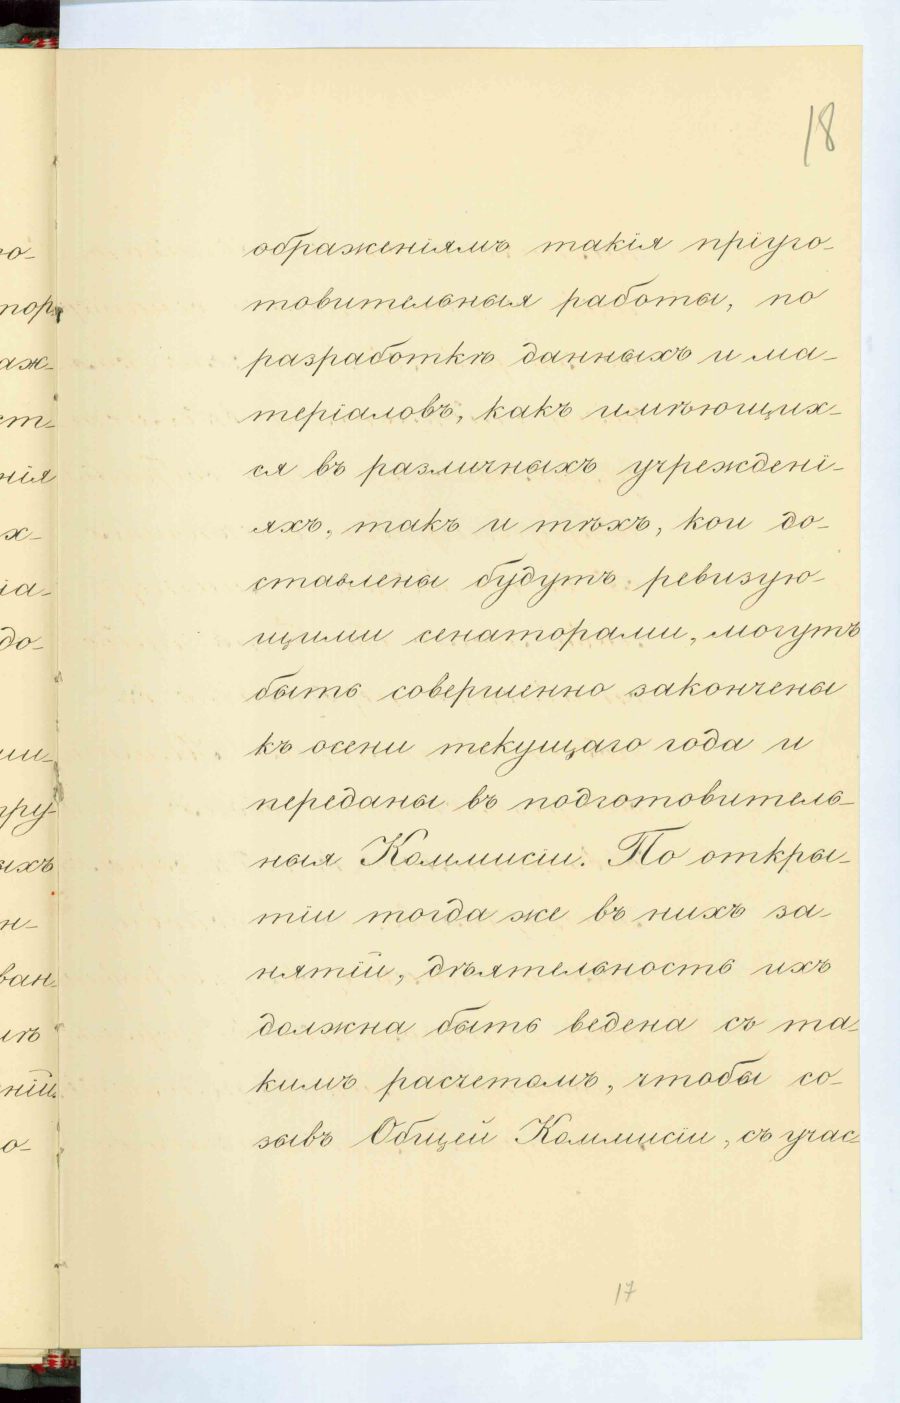 18
ображеніямъ такія пріуго-
товительныя работы, по
разработкѣ данныхъ и ма-
теріаловъ, какъ имѣющих-
ся въ различныхъ учрежденi-
яхъ, такъ и тѣхъ, кои до-
ставлены будутъ ревизую-
щими сенаторами, могутъ
быть совершенно закончены
къ осени текущаго года и
переданы въ подготовитель-
ныя Коммисіи. По откры-
тіи тогда же въ нихъ за-
нятій, дѣятельность ихъ
должна быть ведена съ та-
кимъ расчетомъ, чтобы со-
зывъ Общей Коммисіи, съ учас-
17